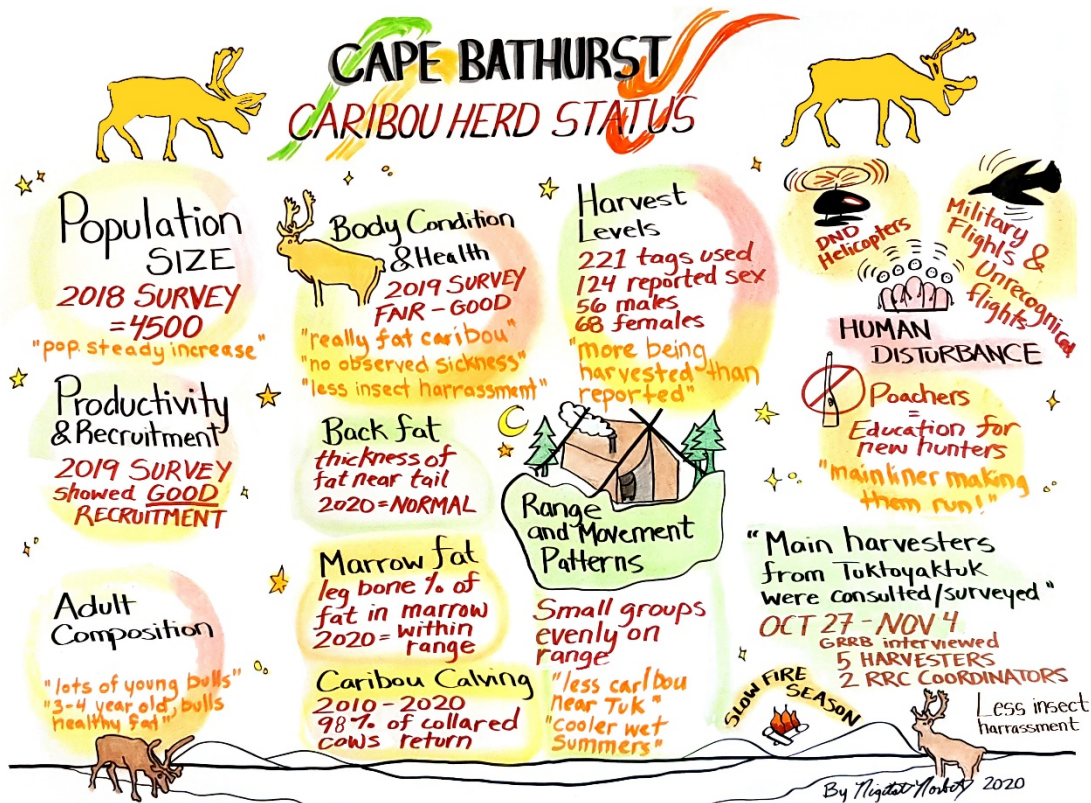 CAPE BATHURST
CARIBOU HERD STATUS
Population
SIZE
2018 SURVEY
=4500
"pop. steady increase"
Productivity
& Recruitment
2019 SURVEY
showed GOOD
RECRUITMENT
Adult
Composition
"lots of young bulls"
"3-4 year old, bulls
healthy fat"
Body Condition
& Health
2019 SURVEY
FAIR - GOOD
"really fat caribou"
"no observed sickness"
"less insect harrassment"
Back fat
thickness of
fat near tail
2020 = NORMAL
Marrow fat
leg bone % of
fat in marrow
2020 = within
range
Caribou Calving
2010 - 2020
98% of collared
cows return
Harvest
Levels
221 tags used
124 reported sex
56 males
68 females
"more being
harvested than
reported"
Range
and Movement
Patterns
Small groups
evenly on
range
"less caribou
near Tuk"
"cooler wet
Summers"
DND
Helicopters
Military
Flights &
Unrecognized
flights
HUMAN
DISTURBANCE
Poachers
=
Education for
new hunters
"mainliner making
them run!"
"Main harvesters
from Tuktoyaktuk
were consulted/surveyed"
OCT 27 - NOV 4
GRRB interviewed
5 HARVESTERS
2 RRC COORDINATORS
SLOW FIRE
SEASON
Less insect
harrassment
By
2020